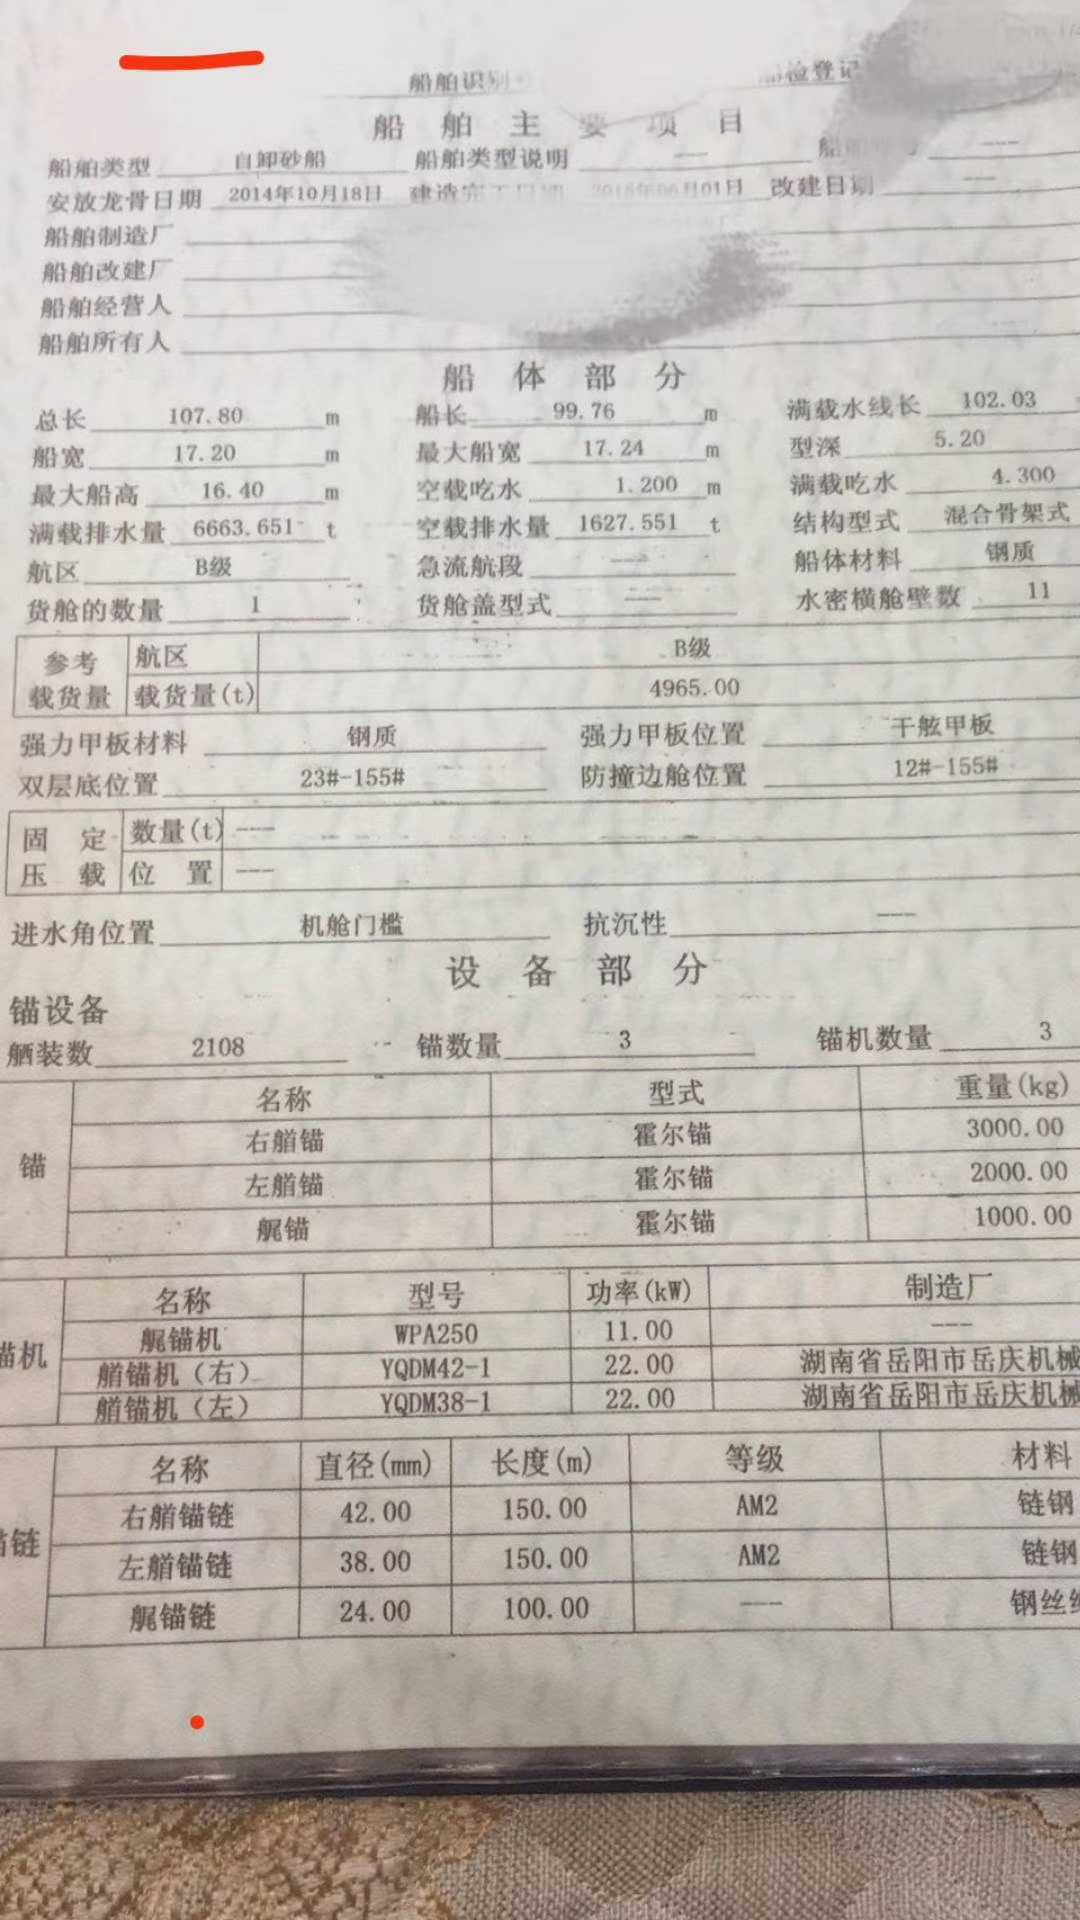 船舶识别 检登记
船舶主要项目
船舶类型 自卸砂船 船舶类型说明 --- ---
安放龙骨日期 2014年10月18日 建造完工日期 月01日 改建日期 ---
船舶制造厂
船舶改建厂
船舶经营人
船舶所有人
船体部分
总长 107.80 m 船长 99.76 m 满载水线长 102.03
船宽 17.20 m 最大船宽 17.24 m 型深 5.20
最大船高 16.40 m 空载吃水 1.200 m 满载吃水 4.300
满载排水量 6663.651 t 空载排水量 1627.551 t 结构型式 混合骨架式
航区 B级 急流航段 --- 船体材料 钢质
货舱的数量 1 货舱盖型式 --- 水密横舱壁数 11
参考载货量 航区 B级
载货量(t) 4965.00
强力甲板材料 钢质 强力甲板位置 干舷甲板
双层底位置 23#-155# 防撞边舱位置 12#-155#
固定压载 数量(t) ---
位置 ---
进水角位置 机舱门槛 抗沉性 ---
设备部分
锚设备
舾装数 2108 锚数量 3 锚机数量 3
锚 名称 型式 重量(kg)
右艏锚 霍尔锚 3000.00
左艏锚 霍尔锚 2000.00
艉锚 霍尔锚 1000.00
锚机 名称 型号 功率(kW) 制造厂
艉锚机 WPA250 11.00 ---
艏锚机（右） YQDM42-1 22.00 湖南省岳阳市岳庆机械
艏锚机（左） YQDM38-1 22.00 湖南省岳阳市岳庆机械
锚链 名称 直径(mm) 长度(m) 等级 材料
右艏锚链 42.00 150.00 AM2 链钢
左艏锚链 38.00 150.00 AM2 链钢
艉锚链 24.00 100.00 --- 钢丝